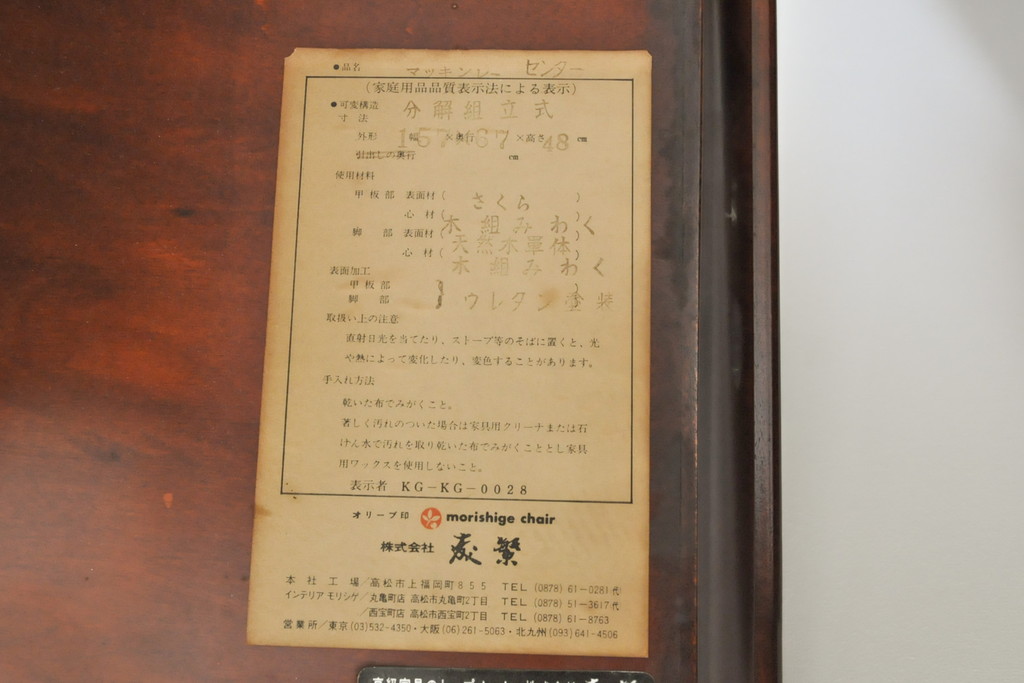 ●品名 マッキンレー センター
(家庭用品品質表示法による表示)
●可変構造 分解組立式
寸法
外形 幅 157×奥行67×高さ48cm
引出しの奥行 cm
使用材料
甲板部 表面材( さくら )
心材( 木組みわく )
脚部 表面材( 天然木単体 )
心材( 木組みわく )
表面加工
甲板部
脚部 } ウレタン塗装
取扱い上の注意
直射日光を当てたり、ストーブ等のそばに置くと、光
や熱によって変化したり、変色することがあります。
手入れ方法
乾いた布でみがくこと。
著しく汚れのついた場合は家具用クリーナまたは石
けん水で汚れを取り乾いた布でみがくこととし家具
用ワックスを使用しないこと。
表示者 KG-KG-0028
オリーブ印 morishige chair
株式会社 森繁
本社工場/高松市上福岡町855 TEL (0878) 61-0281代
インテリア モリシゲ/丸亀町店 高松市丸亀町2丁目 TEL (0878) 51-3617代
/西宝町店 高松市西宝町2丁目 TEL (0878) 61-8763
営業所/東京(03)532-4350・大阪(06)261-5063・北九州(093)641-4506